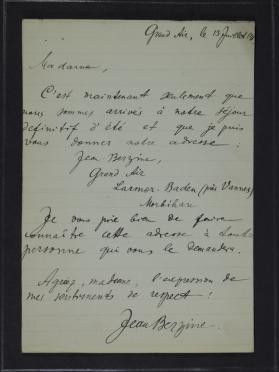 Grand Air, le 15 Juillet
Madame,
C'est maintenant seulement que
nous sommes arrivés à notre séjour
définitif d'été et que je puis
vous donner notre adresse :
Jean Berzine,
Grand Air
Larmor-Baden (près Vannes)
Morbihan
Je vous prie bien de faire
connaître cette adresse à toute
personne qui vous le demandera.
Agréez, madame, l'expression de
mes sentiments de respect !
Jean Berzine.